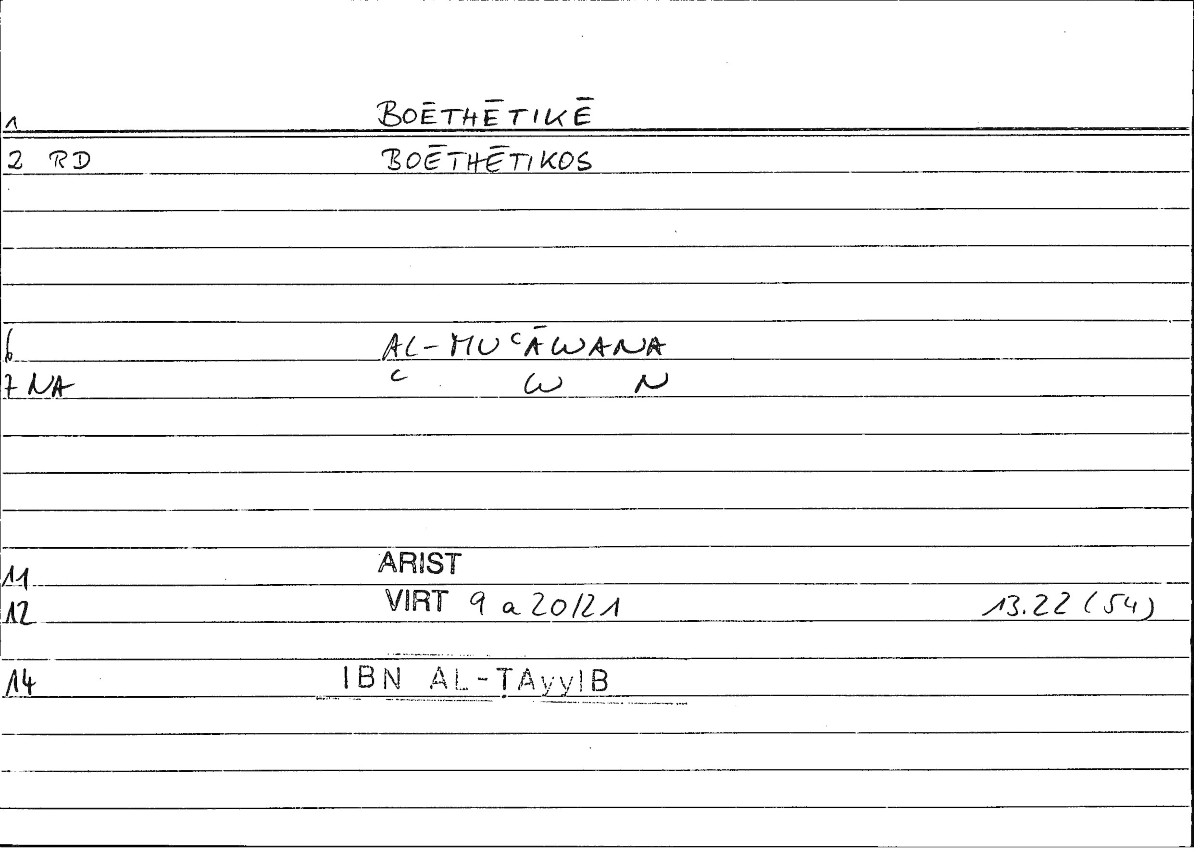 1 BOĒTHĒTIKĒ
2 RD BOĒTHĒTIKOS
6 AL-MUʿĀWANA
7 NA ʿ W N
11 ARIST
12 VIRT 9 a 20/21 13.22 (54)
14 IBN AL-ṬAyyIB